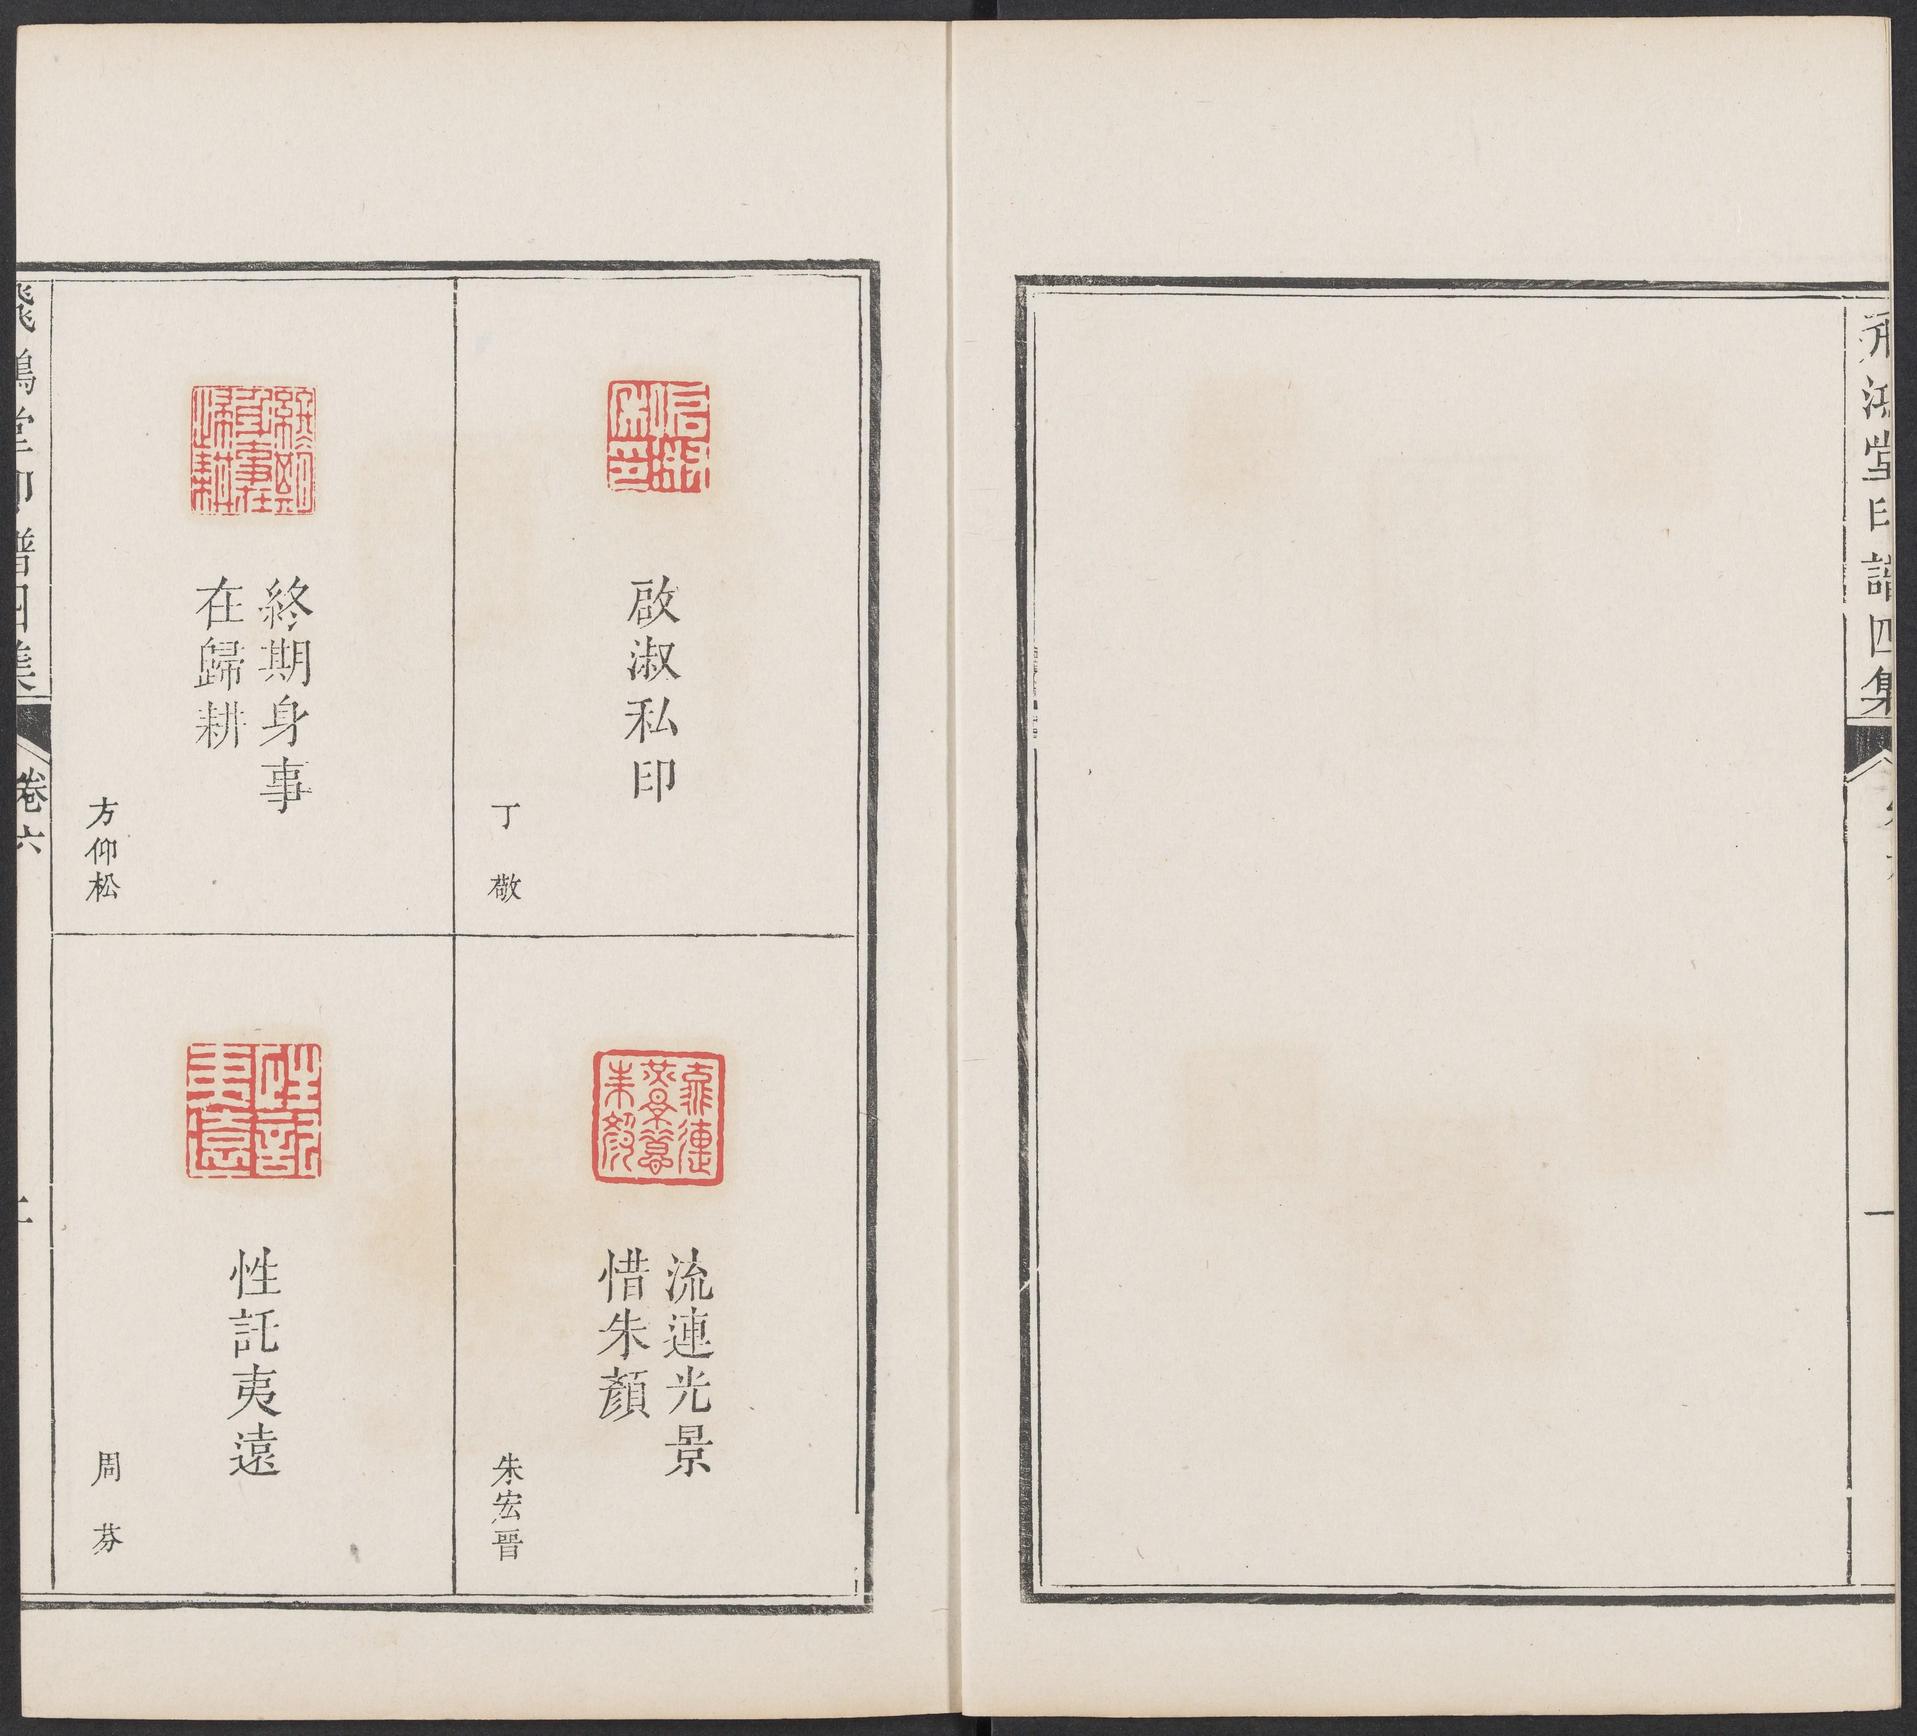 飛鴻堂印譜四集
一
啟淑私印
丁敬
流連光景
惜朱顏
朱宏晉
終期身事
在歸耕
方仰松
性託夷遠
周芬
飛鴻堂印譜四集
卷六
二